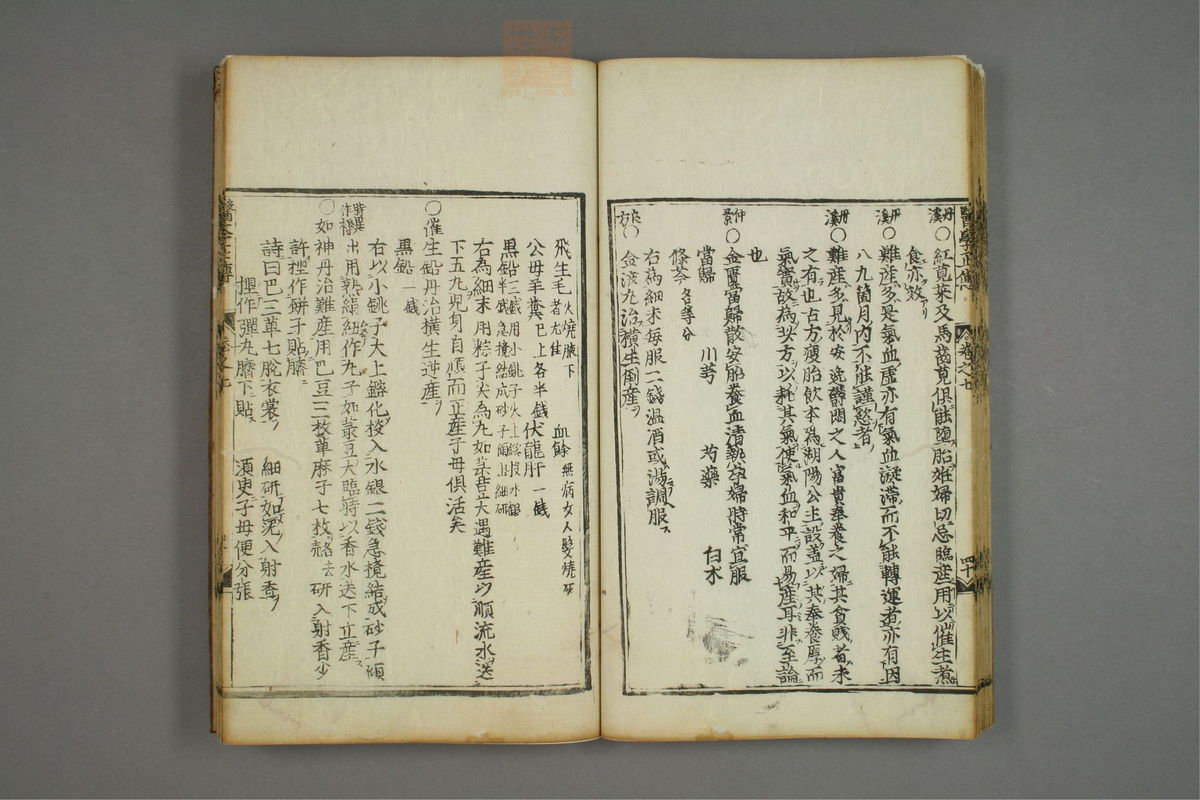 醫學正傳 卷之七 四十
丹溪○紅莧菜及馬齒莧俱能墮胎妊婦切忌臨產用以催生煮
食亦效
丹溪○難產多是氣血虛亦有氣血凝滯而不能轉運者亦有因
八九箇月內不能謹慾者
丹溪○難產多見於安逸鬱悶之人富貴奉養之婦其貧賤者未
之有也古方瘦胎飲本為湖陽公主設蓋以其奉養厚而
氣實故為此方以耗其氣使氣血和平而易產耳非至論
也
仲景○金匱當歸散安胎養血清熱孕婦時常宜服
當歸 川芎 芍藥 白朮
條芩各等分
右為細末每服二錢溫酒或湯調服
良方○金液丸治橫生倒產
飛生毛火燒腋下者尤佳 血餘無病女人髮燒灰
公母羊糞已上各半錢伏龍肝一錢
黑鉛三錢用小銚子火上鎔投水銀半錢急攪結成砂子傾出細研
右為細末用粽子尖為丸如菉豆大遇難產以順流水送
下五丸兒身自順而正產子母俱活矣
○催生鉛丹治橫生逆產
黑鉛一錢
右以小銚子火上鎔化投入水銀二錢急攪結成砂子傾
出用熟絹紐作丸子如菉豆大臨時以香水送下立產
○如神丹治難產用巴豆三枚蓖麻子七枚殼去研入射香少
許捏作餅子貼臍
詩曰巴三蓖七脫衣裳 細研如泥入射香
捏作彈丸臍下貼 須臾子母便分張